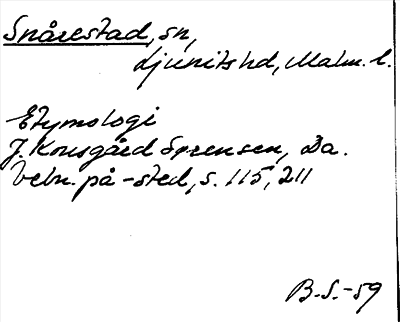 Snårestad, sn,
Ljunits hd, Malm. l.
Etymologi
J. Kousgård Sørensen, Da.
bebn. på -sted, s. 115, 211
B.S.-59